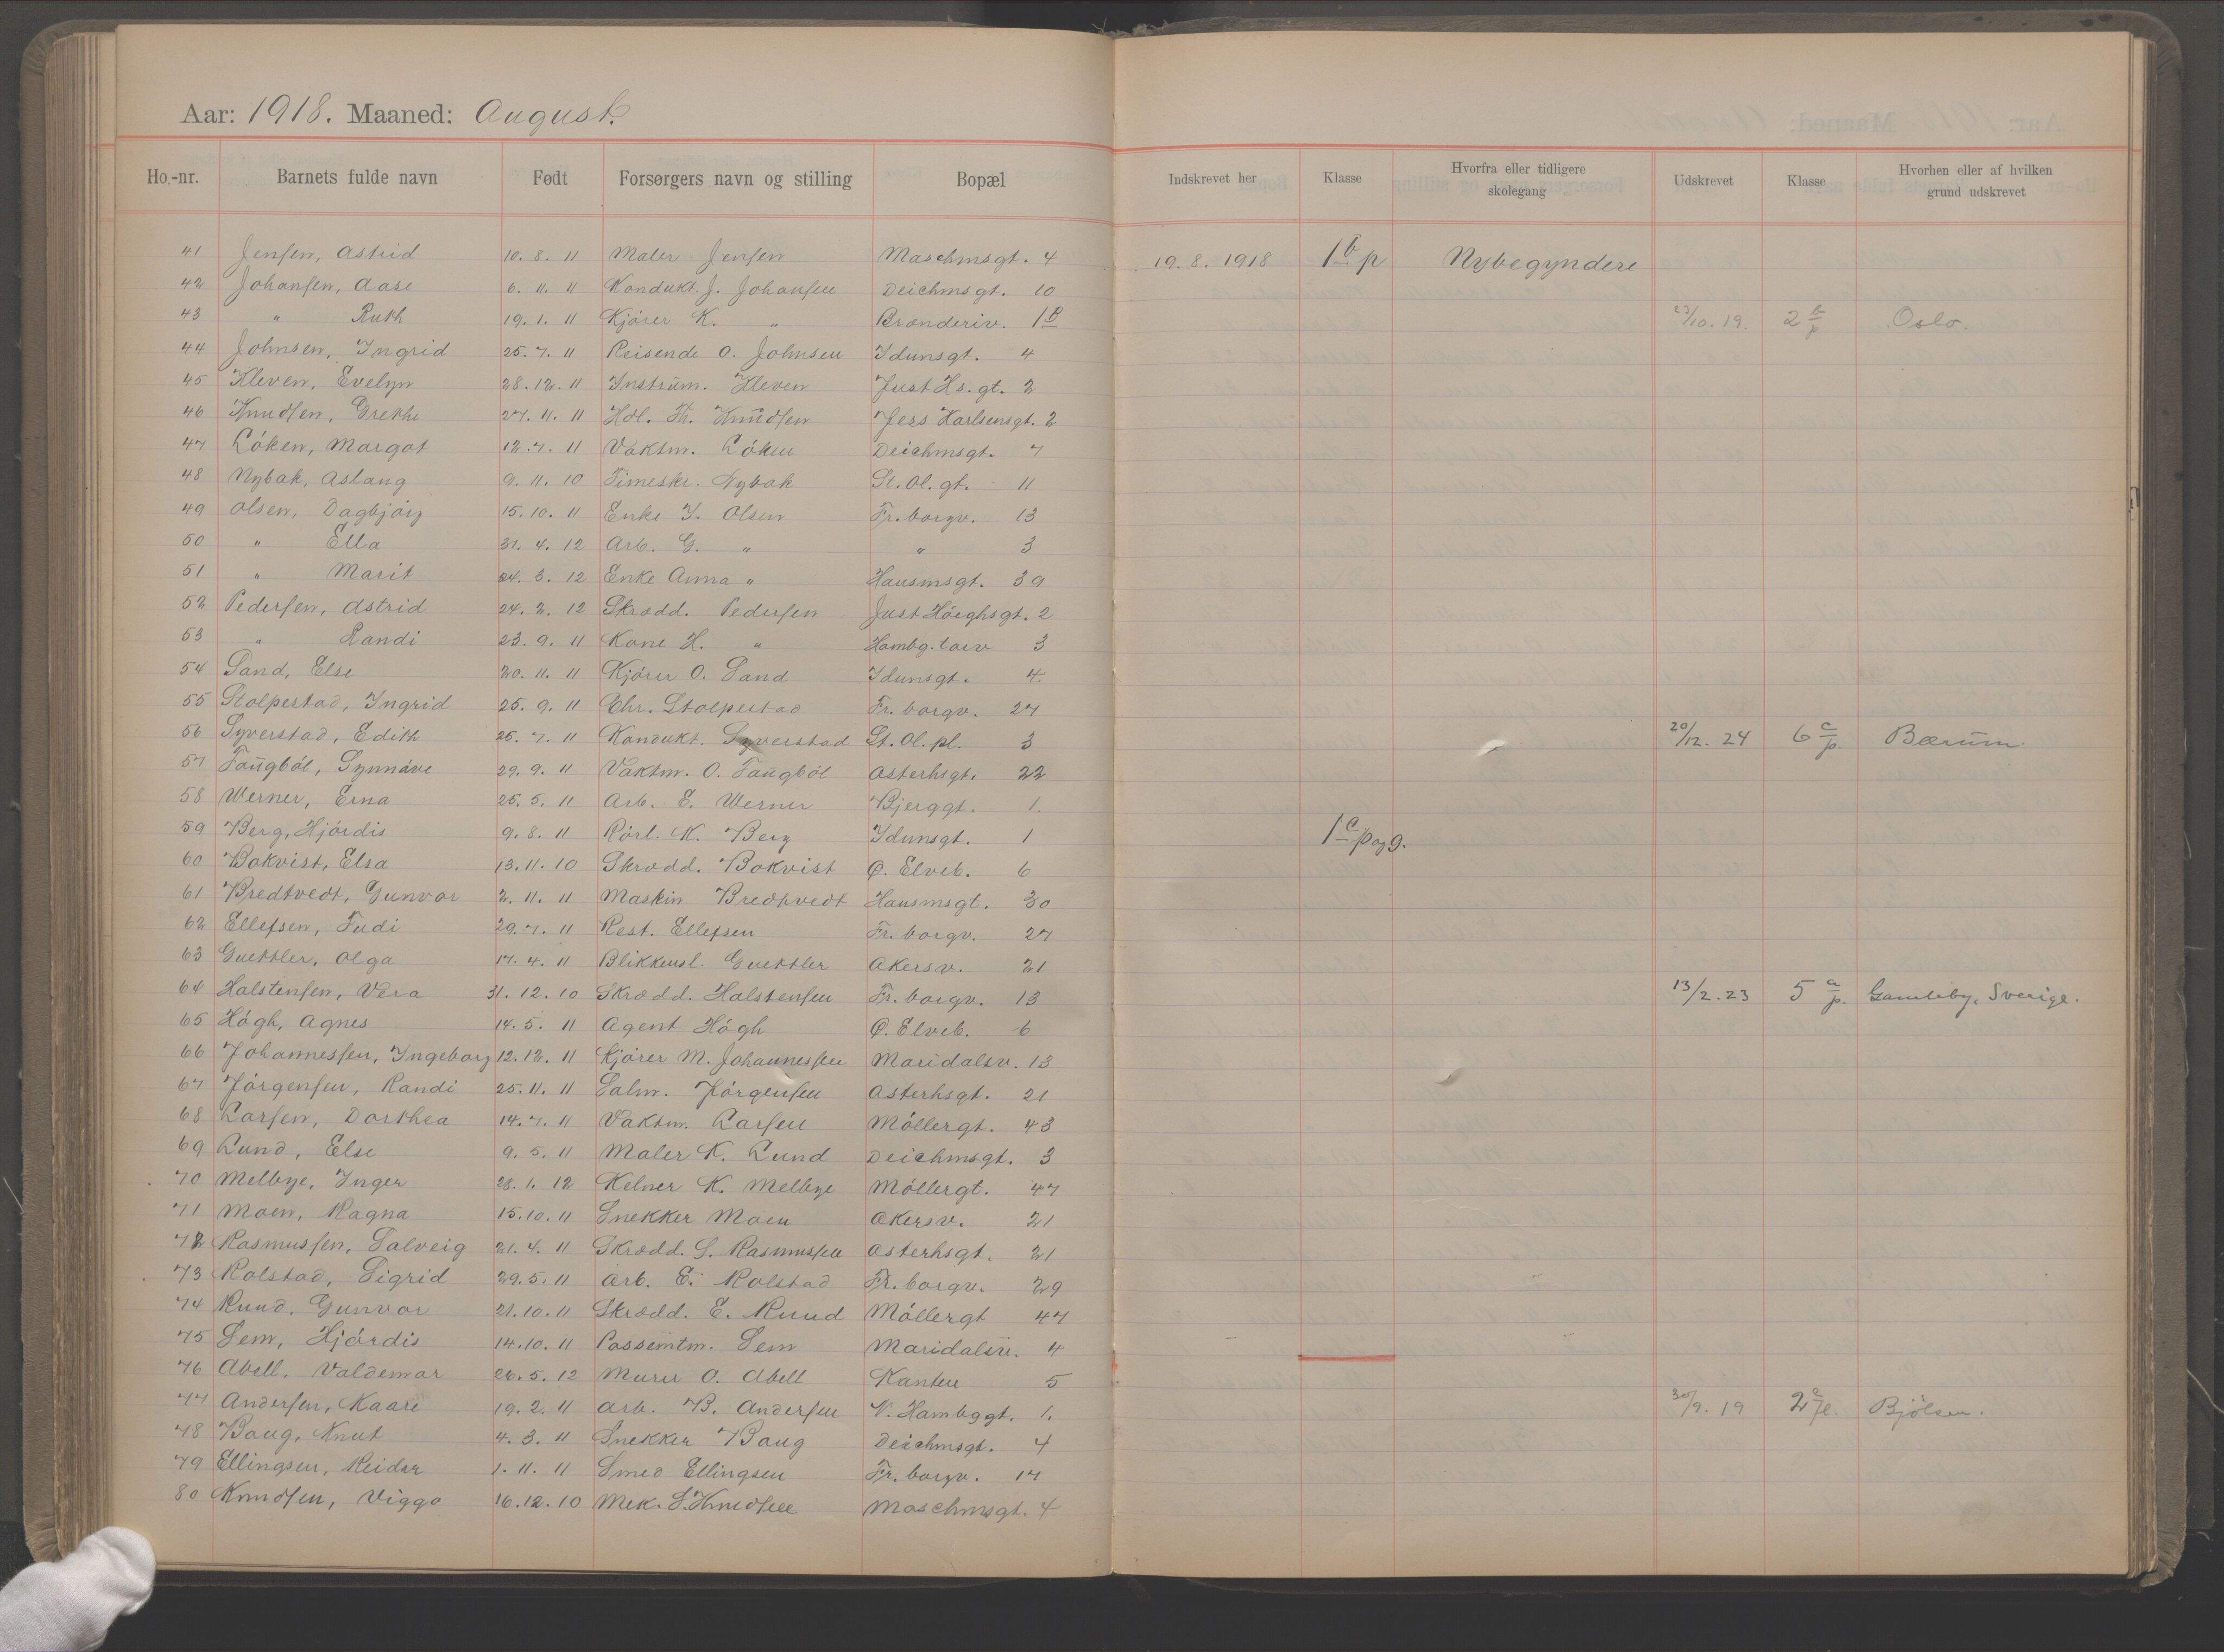 Aar: 1918. Maaned: August.
Ho.-nr. Barnets fulde navn Født Forsørgers navn og stilling Bopæl Indskrevet her Klasse Hvorfra eller tidligere skolegang Udskrevet Klasse Hvorhen eller af hvilken grund udskrevet
41 Jensen, Astrid 10. 8. 11 Maler Jensen Maschmsgt. 4 19. 8. 1918 1 b p Nybegyndere
42 Johansen, Aase 6. 11. 11 Kondukt. J. Johansen Deichmsgt. 10
43 " Ruth 19. 1. 11 Kjører K. " Brænderiv. 1B 27/10. 19. 2 b/p Oslo.
44 Johnsen, Ingrid 25. 7. 11 Reisende O. Johnsen Idunsgt. 4
45 Kleven, Evelyn 28. 12. 11 Instrum. Kleven Just Hs. gt. 2
46 Knudsen, Grethe 27. 11. 11 Hdl. Th. Knudsen Jess Karlsensgt. 2
47 Løken, Margot 12. 7. 11 Vaktm. Løken Deichmsgt. 7
48 Nybak, Aslaug 9. 11. 10 Timeskr. Nybak St. Ol. gt. 11
49 Olsen, Dagbjørg 15. 10. 11 Enke J. Olsen Fr. borgv. 13
50 " Ella 21. 4. 12 Arb. G. " " 3
51 " Marit 24. 3. 12 Enke Anna " Hausmsgt. 39
52 Pedersen, Astrid 24. 2. 12 Skrædd. Pedersen Just Høeghsgt. 2
53 " Randi 23. 9. 11 Kone H. " Hambg. torv 3
54 Sand, Else 20. 11. 11 Kjører O. Sand Idunsgt. 4.
55 Stolpestad, Ingrid 25. 9. 11 Chr. Stolpestad Fr. borgv. 27
56 Syverstad, Edith 25. 7. 11 Kondukt. Syverstad St. Ol. pl. 3 20/12. 24 6 c/p. Bærum.
57 Taugbøl, Synnøve 29. 9. 11 Vaktm. O. Taugbøl Asterhsgt. 22
58 Werner, Erna 25. 5. 11 Arb. E. Werner Bjerggt. 1.
59 Berg, Hjørdis 9. 8. 11 Rørl. K. Berg Idunsgt. 1 1 c p og g.
60 Bokvist, Elsa 13. 11. 10 Skrædd. Bokvist Ø. Elveb. 6
61 Bredtvedt, Gunvor 2. 11. 11 Maskin Bredtvedt Hausmsgt. 30
62 Ellefsen, Fudi 29. 7. 11 Rest. Ellefsen Fr. borgv. 27
63 Guettler, Olga 17. 4. 11 Blikkensl. Guettler Akersv. 21
64 Halstensen, Vera 31. 12. 10 Skrædd. Halstensen Fr. borgv. 13 13/2. 23 5 a/p. Gamleby, Sverige.
65 Høgh, Agnes 14. 5. 11 Agent Høgh Ø. Elveb. 6
66 Johannessen, Ingeborg 12. 12. 11 Kjører M. Johannessen Maridalsv. 13
67 Jørgensen, Randi 25. 11. 11 Salm. Jørgensen Asterhsgt. 21
68 Larsen, Dorthea 14. 7. 11 Vaktm. Larsen Møllergt. 43
69 Lund, Else 9. 5. 11 Maler K. Lund Deichmsgt. 3
70 Melbye, Inger 28. 1. 12 Kelner K. Melbye Møllergt. 47
71 Moen, Ragna 15. 10. 11 Snekker Moen Akersv. 21
72 Rasmussen, Solveig 21. 4. 11 Skrædd. S. Rasmussen Asterhsgt. 21
73 Rolstad, Sigrid 29. 5. 11 Arb. E. Rolstad Fr. borgv. 29
74 Ruud, Gunvor 21. 10. 11 Skrædd. E. Ruud Møllergt 47
75 Sem, Hjørdis 14. 10. 11 Possemtm. Sem Maridalsv. 4
76 Abell, Valdemar 26. 5. 12 Murer O. Abell Kanten 5
77 Andersen, Kaare 19. 2. 11 Arb. B. Andersen N. Hambggt. 1. 30/9. 19 2 Bjølsen.
78 Baug, Knut 4. 3. 11 Snekker Baug Deichmsgt. 4
79 Ellingsen, Reidar 1. 11. 11 Smed Ellingsen Fr. borgv. 17
80 Knudsen, Viggo 16. 12. 10 Mek. S. Knudsen Maschmsgt. 4